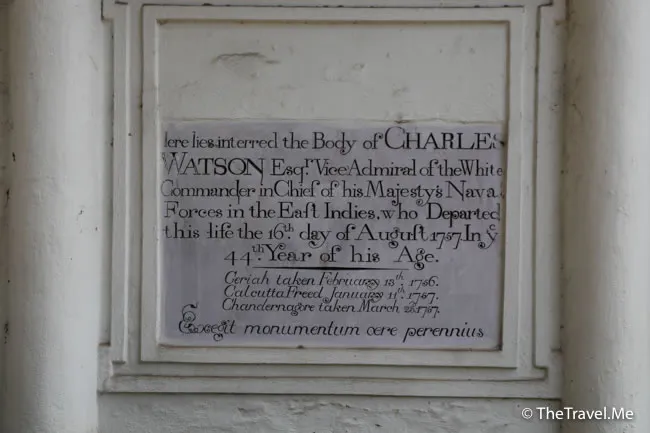 Here lies interred the Body of CHARLES
WATSON Esqr. Vice Admiral of the White
Commander in Chief of his Majesty's Naval
Forces in the East Indies, who Departed
this life the 16th. day of August 1757. In ye
44th. Year of his Age.
Geriah taken February 13th. 1756.
Calcutta Freed January 11th. 1757.
Chandernagore taken March 1757.
Exegit monumentum ære perennius
© TheTravel.Me